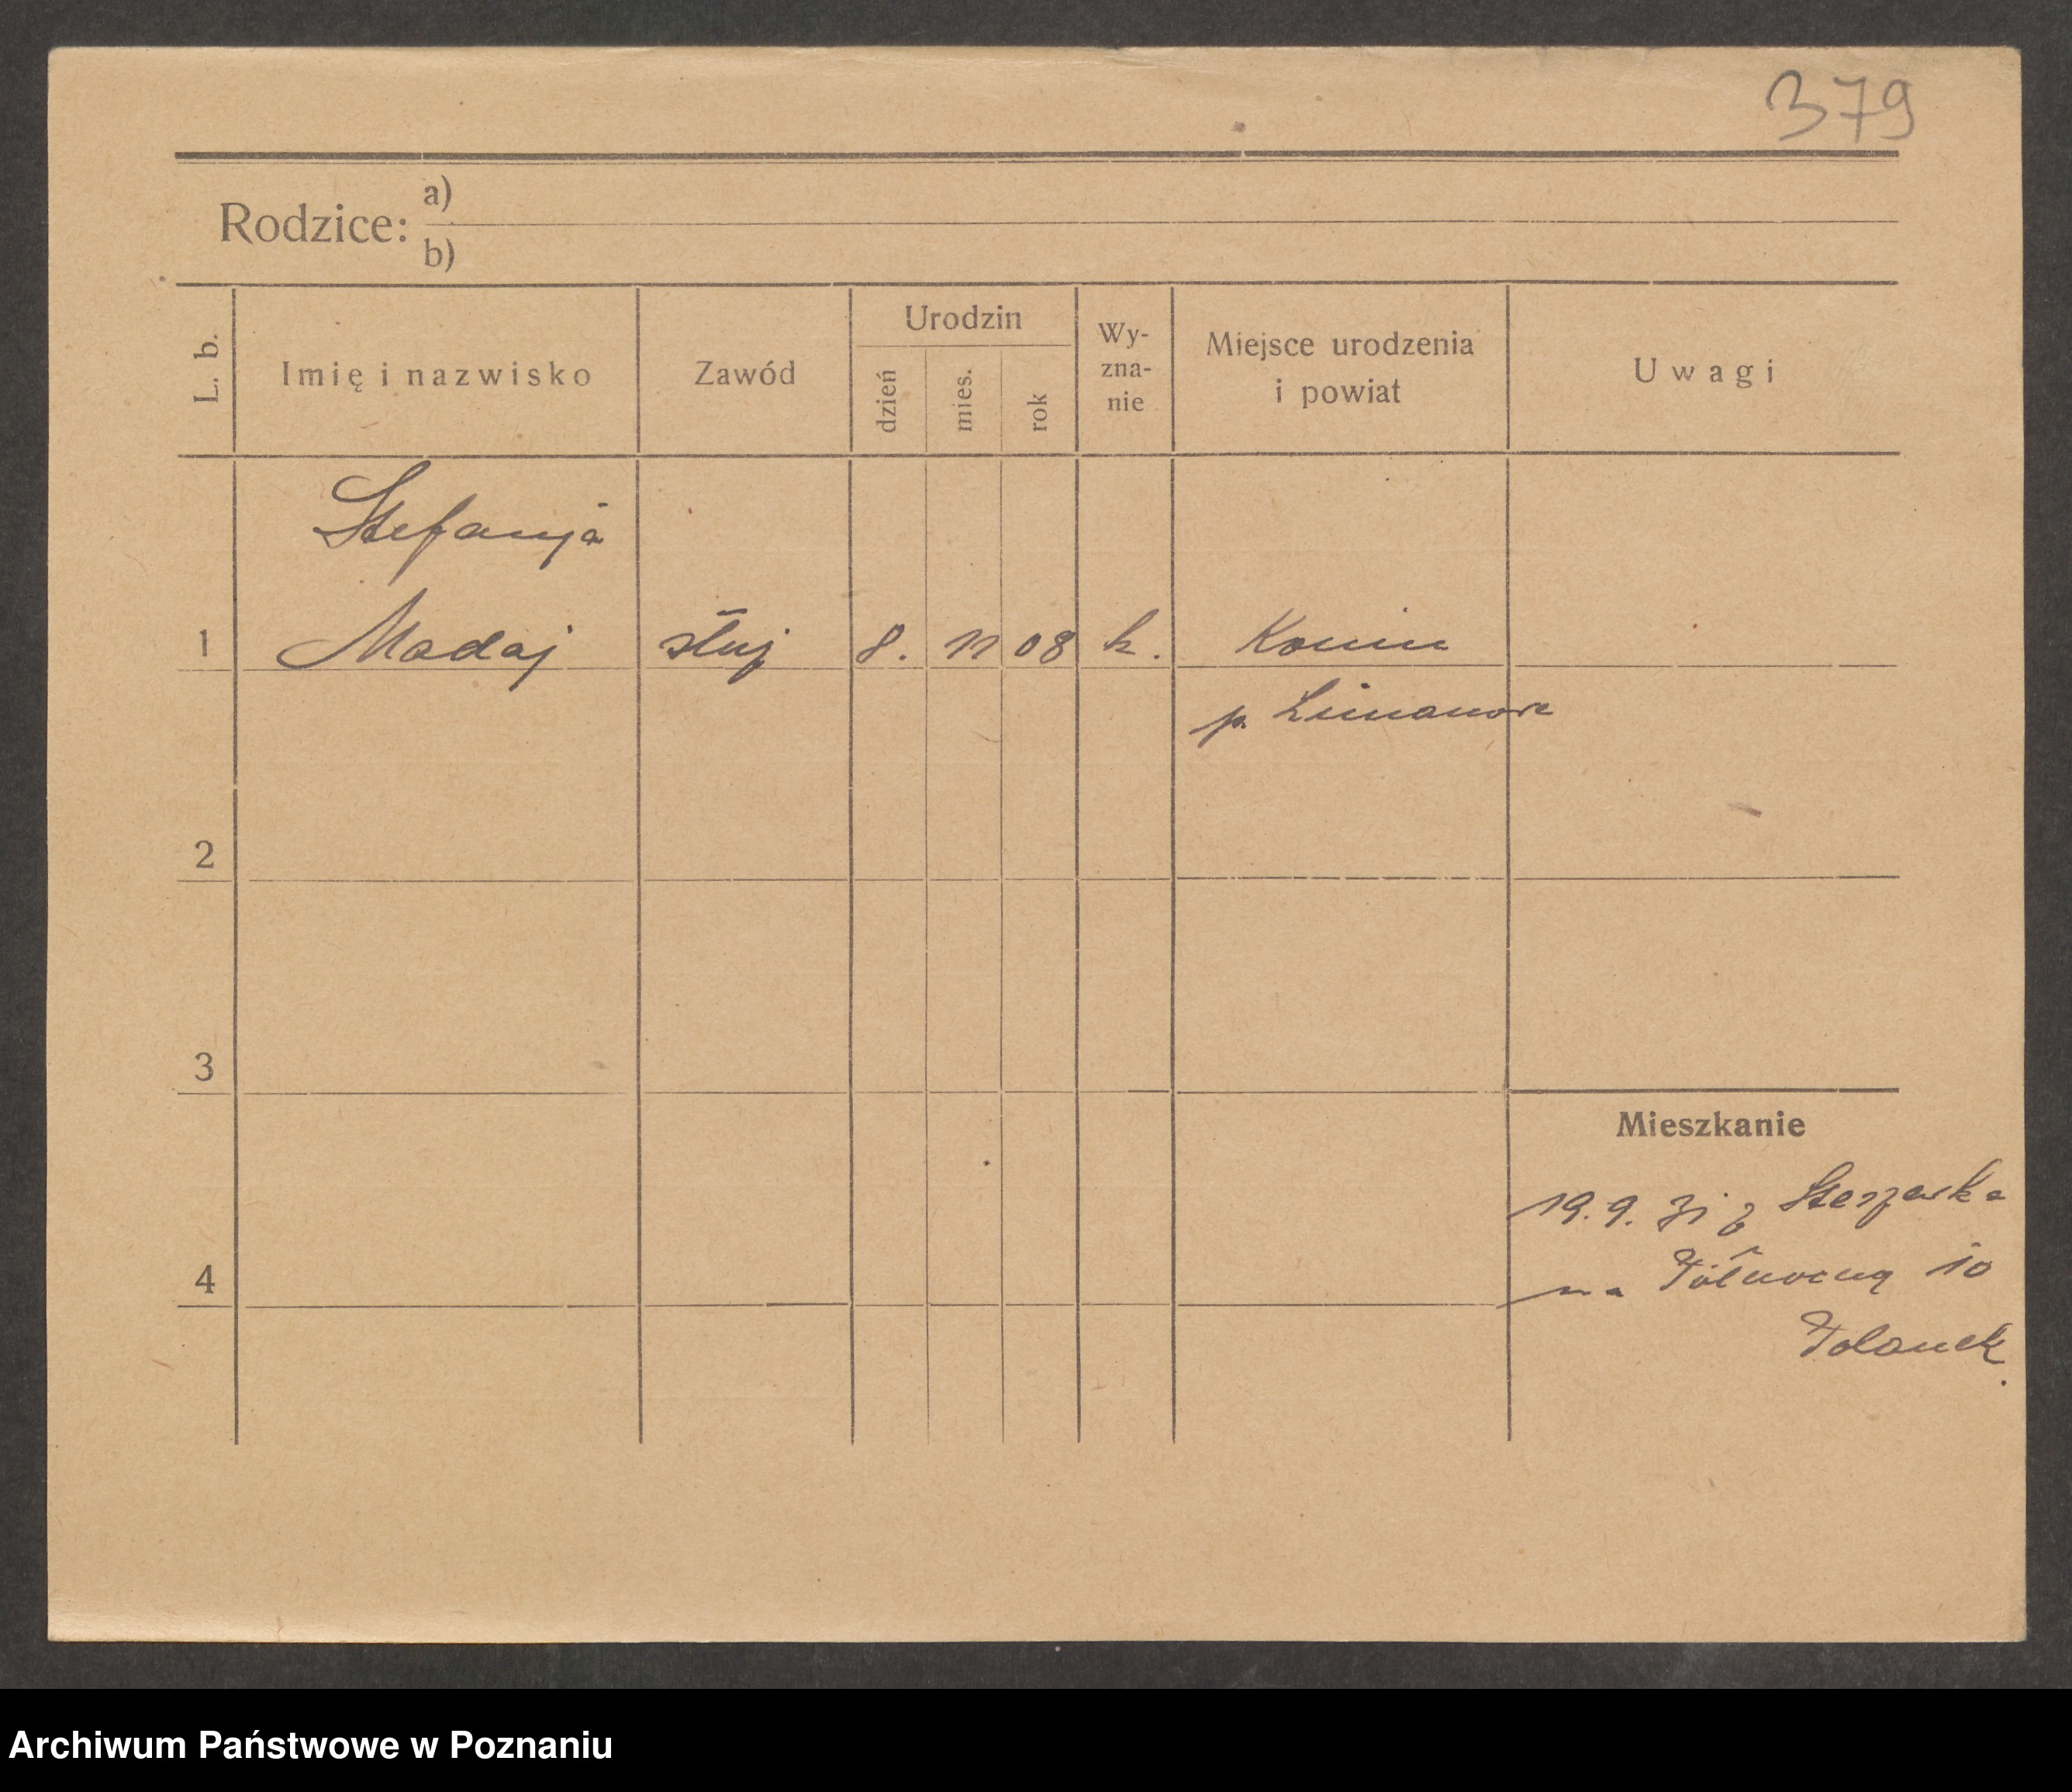 379
Rodzice: a)
b)
L. b.
Imię i nazwisko
Zawód
Urodzin
dzień
mies.
rok
Wy-
zna-
nie
Miejsce urodzenia
i powiat
Uwagi
Stefanja
1 Madaj służ 8. 11 08 k. Konin
p. Limanowa
2
3
Mieszkanie
19.9. 31 z
4
na Północną 10
Polanek
Archiwum Państwowe w Poznaniu